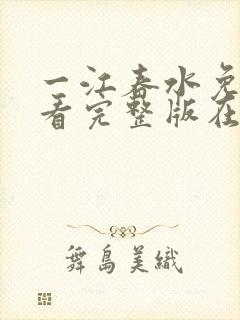 一江春水免
看完整版在
舞島美織